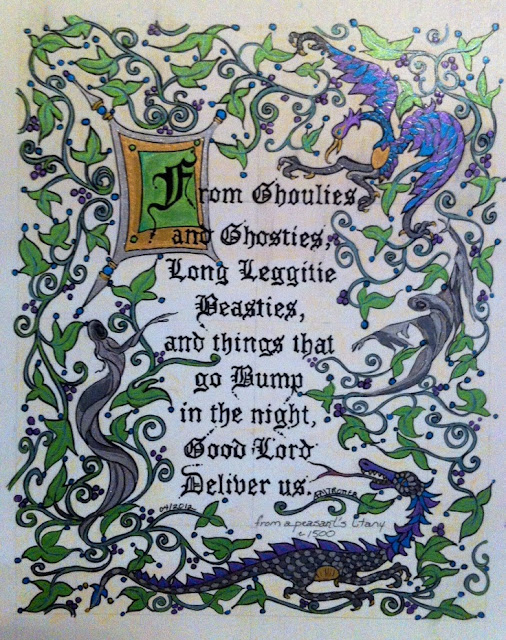 From Ghoulies
and Ghosties,
Long Leggitie
Beasties,
and things that
go Bump
in the night,
Good Lord
Deliver us.
04/2012
from a peasant's litany
c. 1500